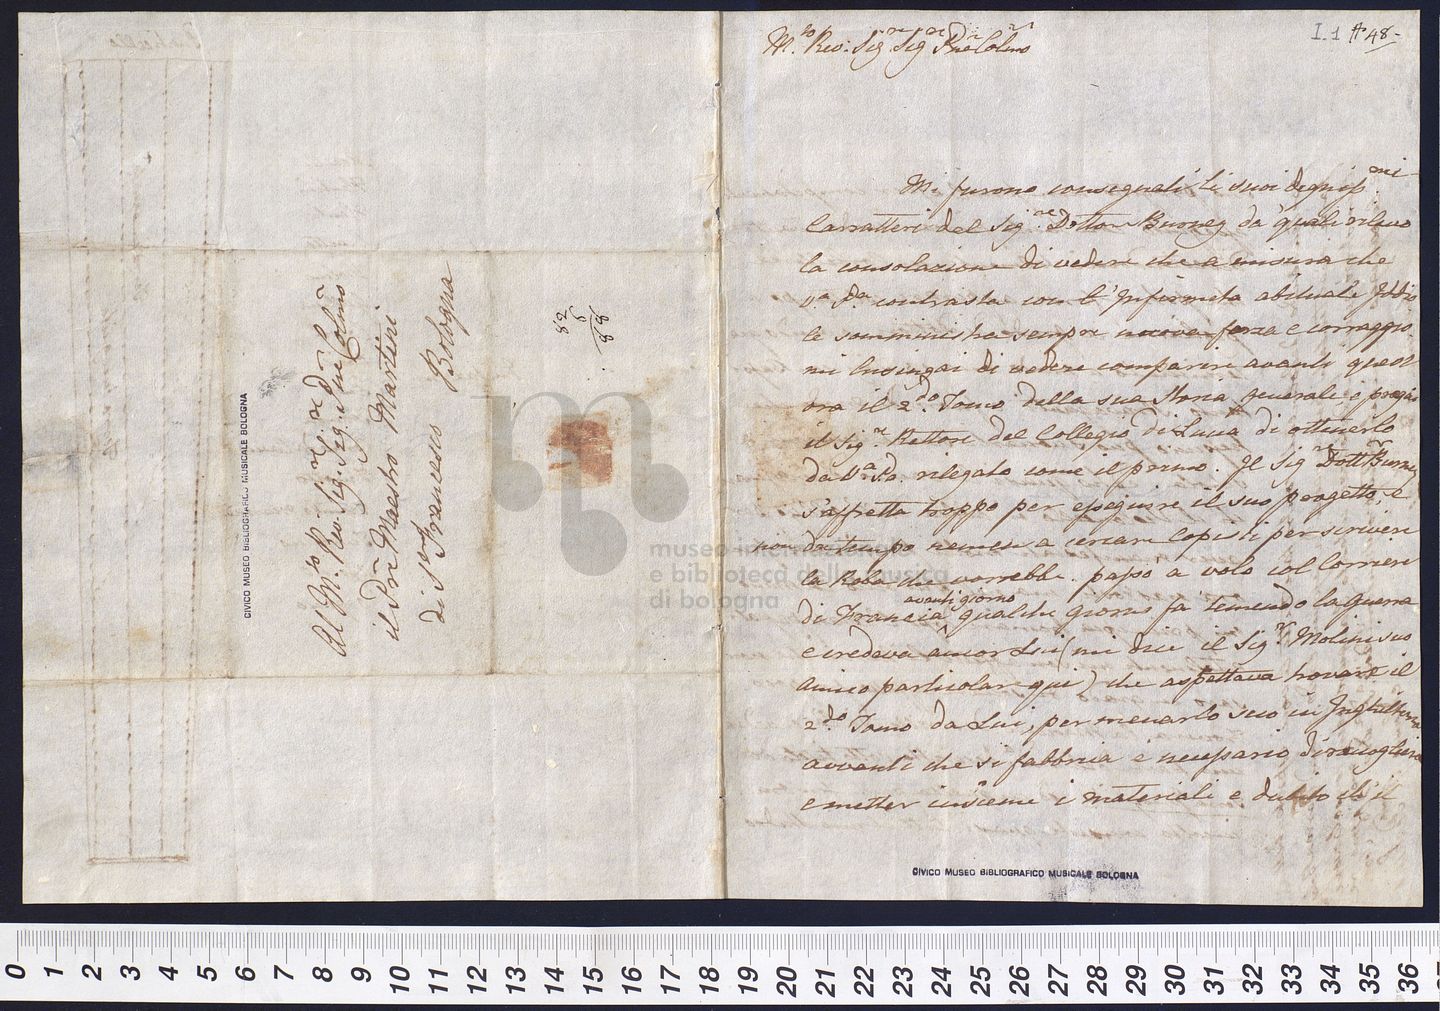 Al M.to Rev. Sig.re Sig.re P.ne Colmo
il P.re Maestro Martini
di S.n Francesco Bologna
CIVICO MUSEO BIBLIOGRAFICO MUSICALE BOLOGNA
I.1 48
M.to Rev: Sig.re Sig.re P.ne Colmo
Mi furono consegnati li suoi degniss.mi
Carratteri dal Sig.re Dottor Burney da quali rilevo
la consolazione di vedere che a misura che
V.a P.a contrasta con l'Infermità abituale Iddio
le somministra sempre nuova forza e corraggio
mi lusingai di vedere comparire avanti quest
ora il 2.do Tomo della sua Storia, generale e pregai
il Sig.re Rettore del Collegio di Lucca di ottenerlo
da V.a P.a rilegato come il primo. Il Sig.re Dott. Burney
s'affretta troppo per eseguire il suo progetto, e
non da tempo nemen a cercare Copisti per scrivere
la Roba che vorrebbe. passò a volo col Corriere
di Francia avanti giorno qualche giorno fa temendo la guerra
e credeva ancor Lui (mi dice il Sig.r Molini suo
Amico particolar qui) che aspettava trovare il
2.do Tomo da Lui, per menarlo seco in Inghilterra
avvanti che si fabbrica è necessario di racogliere
e metter insieme i materiali e dubito ch'il
CIVICO MUSEO BIBLIOGRAFICO MUSICALE BOLOGNA
museo internazionale
e biblioteca della musica
di bologna
0 1 2 3 4 5 6 7 8 9 10 11 12 13 14 15 16 17 18 19 20 21 22 23 24 25 26 27 28 29 30 31 32 33 34 35 36